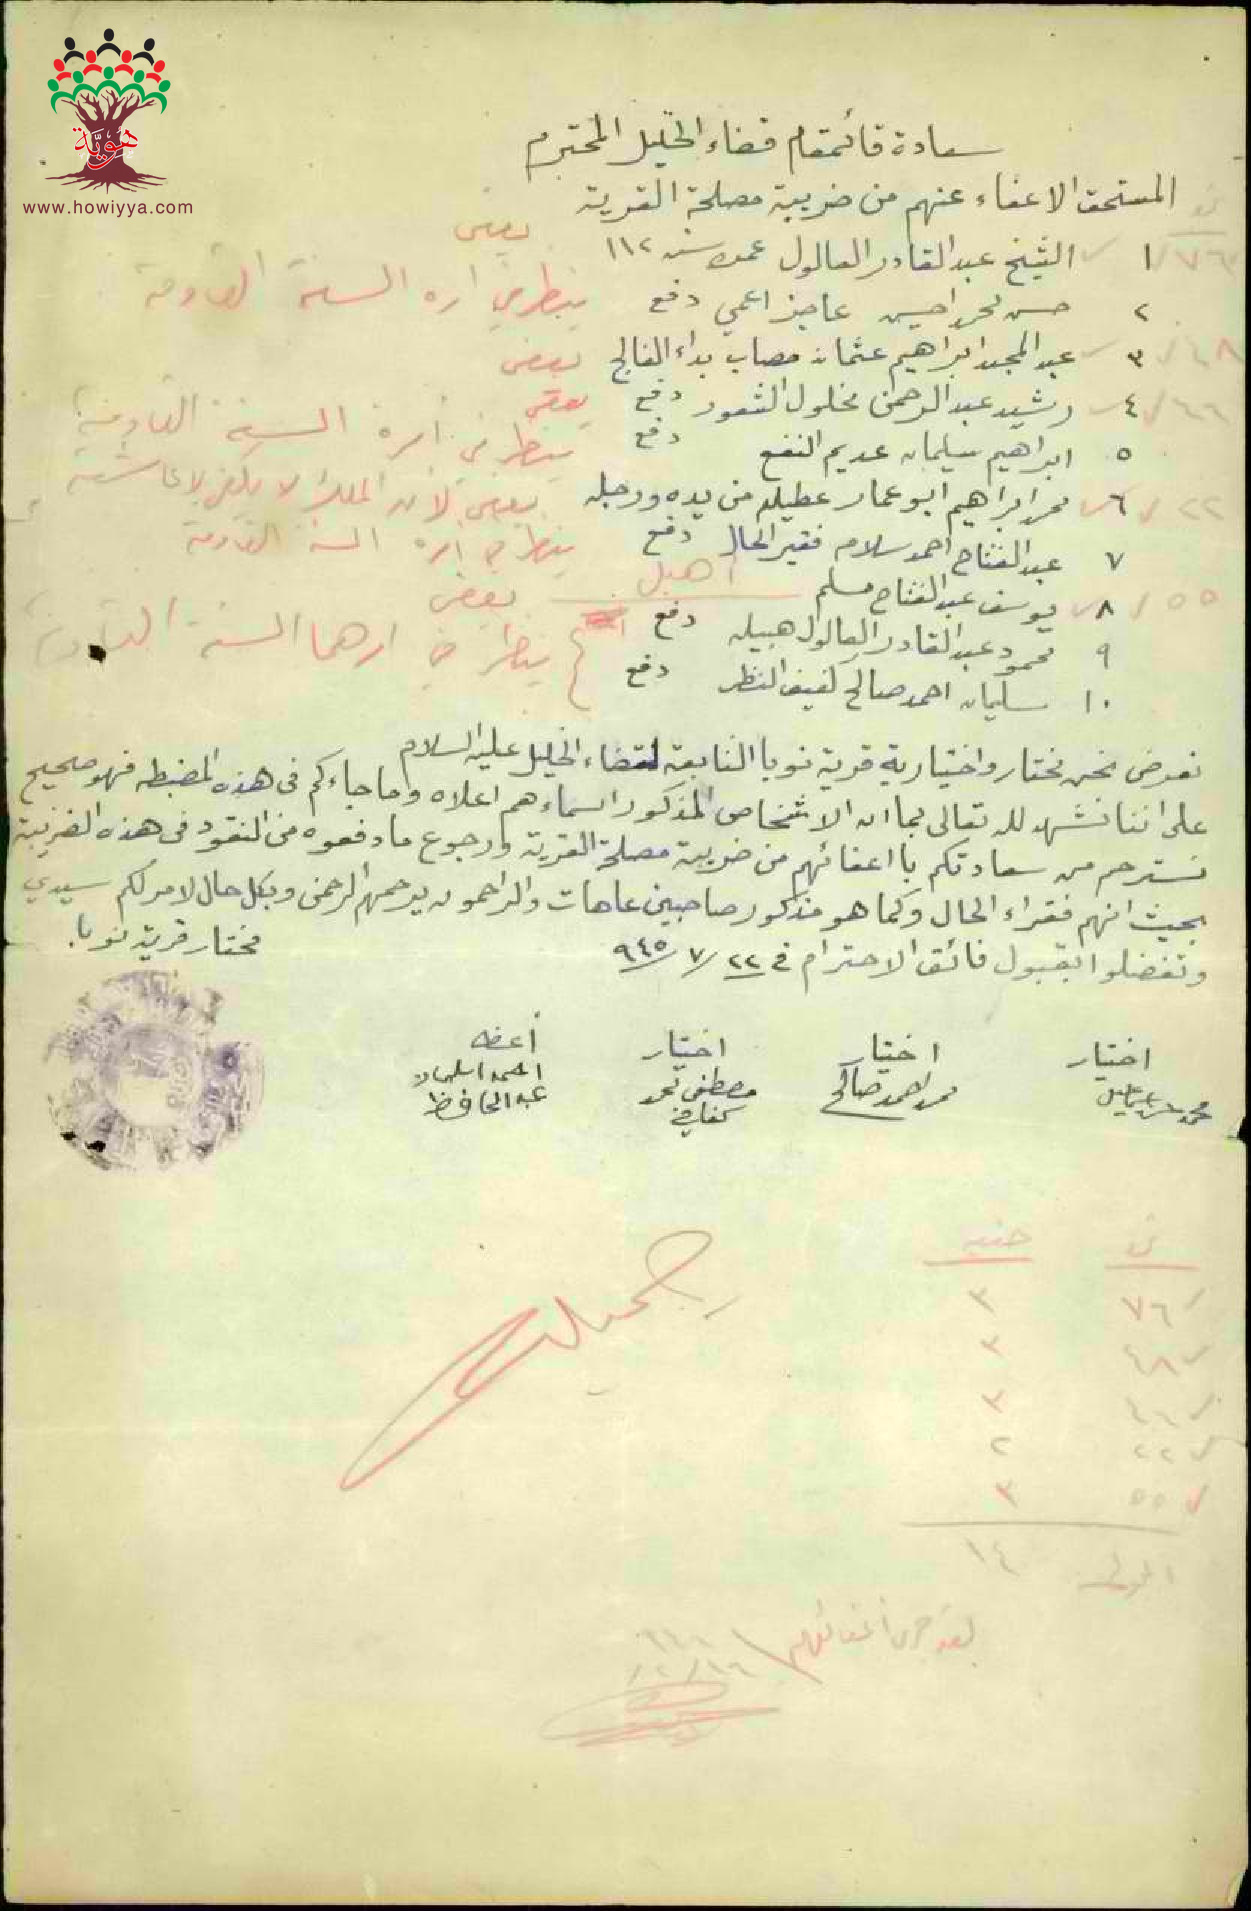 هوية
www.howiyya.com
سعادة قائمقام قضاء الخليل المحترم
المستحق الاعفاء عنهم من ضريبة مصلحة القرية
٧٦ ١ الشيخ عبد القادر العالول عمره سنه ١١٢ يعفى
٢ حسن محمد احسين عاجز اعمي دفع ينظر في امره السنة القادمة
٤٨ ٣ عبد المجيد ابراهيم عثمان مصاب بداء الفالج يعفى
٦٦ ٤ رشيد عبد الرحمن مخلول الشعور دفع يعفى
٥ ابراهيم سليمان عديم النفع دفع ينظر في أمره السنة القادمة
٢٢ ٦ محمد ابراهيم ابو عمار عطيله من يده ورجله يعفى لأن
٧ عبد الفتاح احمد سلامه فقير الحال دفع ينظر في أمره السنة القادمة
٥٥ ٨ يوسف عبد الفتاح مسلم أهبل يعفى
٩ محمود عبد القادر العالول هبيله دفع
١٠ سليمان احمد صالح كفيف النظر دفع ينظر في امرهما السنة القادمة
نعرض نحن مختار واختيارية قرية نوبا التابعة لقضاء الخليل عليه السلام
على اننا نشهد لله تعالى بما ان الاشخاص المذكور اسماءهم اعلاه وما جاءكم في هذه المضبطه فهو صحيح
نسترحم من سعادتكم با اعفائهم من ضريبة مصلحة القرية وارجوع ما دفعوه من النقود في هذه الضريبة
بحيث انهم فقراء الحال وكما هو مذكور صاحبين عاهات والراحمون يرحمهم الرحمن وبكل حال لامر لكم سيدي
وتفضلوا بقبول فائق الاحترام في ٢٢/٧/٩٤٥ مختار قرية نوبا
اختيار اختيار اختيار أعضه
محمد محمد احمد صالح مصطفى محمد احمد اسليمان
عبد الحافظ
جنيه
٧٦ ٣
٤٨ ٣
٦٦ ٣
٢٢ ٢
٥٥ ٣
١٤
لقد جرى اعفائهم